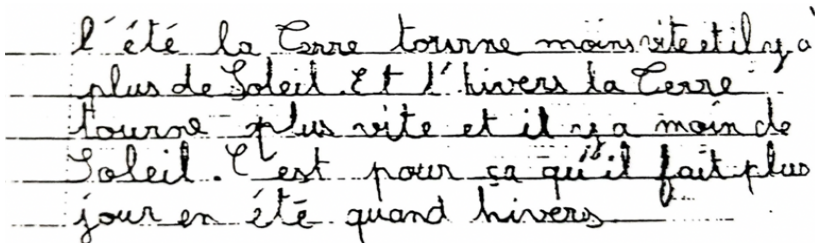 l'été la Terre tourne moins vite et il y a
plus de Soleil. Et l'hivers la Terre
tourne plus vite et il y a moin de
Soleil. C'est pour ça qu'il fait plus
jour en été quand hivers